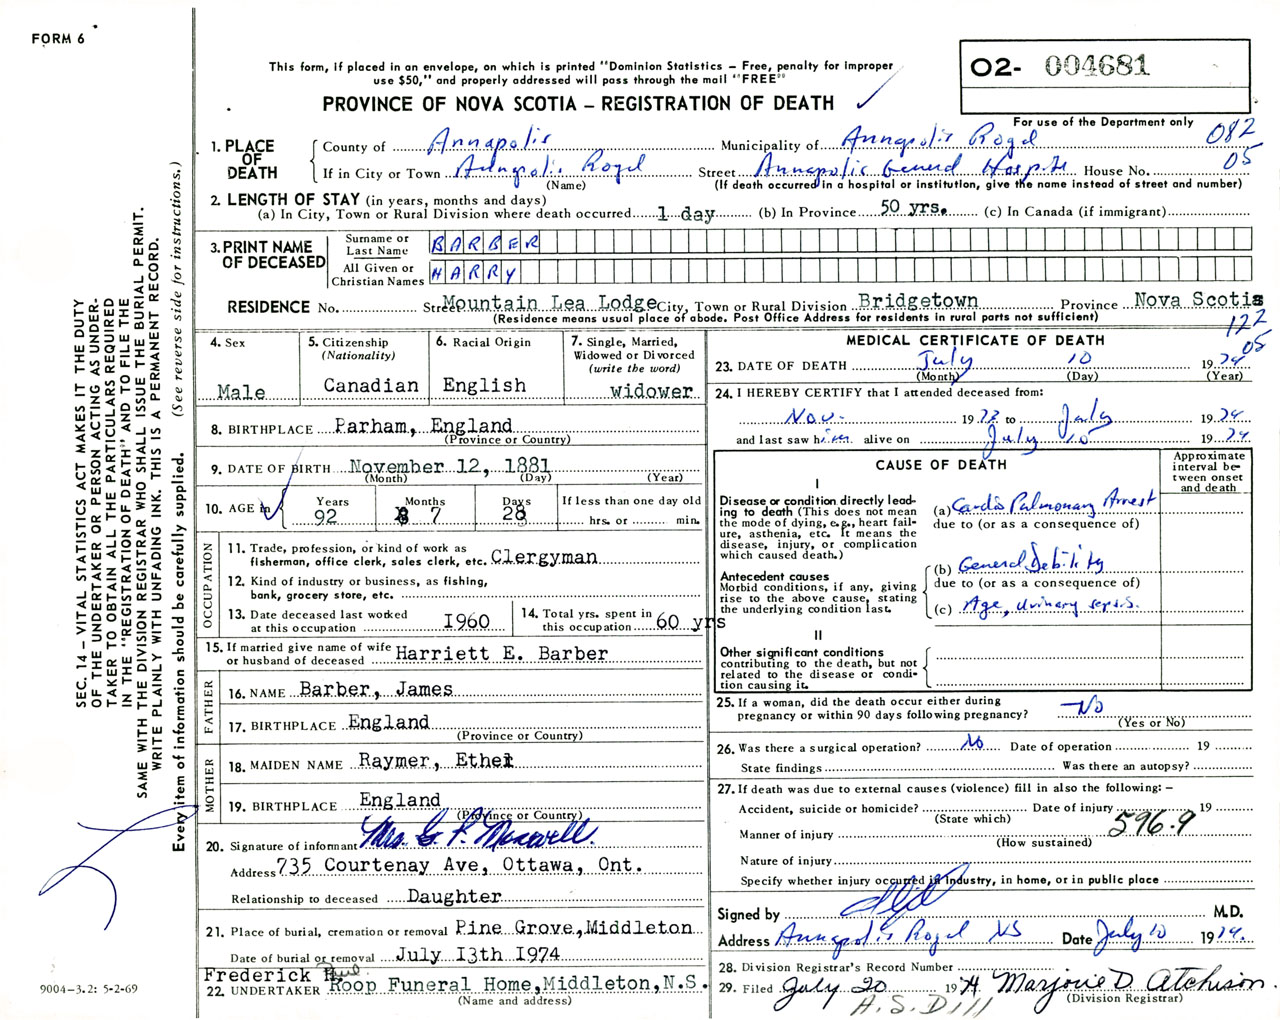 FORM 6
This form, if placed in an envelope, on which is printed "Dominion Statistics – Free, penalty for improper
use $50," and properly addressed will pass through the mail "FREE"
PROVINCE OF NOVA SCOTIA – REGISTRATION OF DEATH
O2- 004681
For use of the Department only
082
05
1. PLACE OF DEATH
County of Annapolis Municipality of Annapolis Royal
If in City or Town Annapolis Royal Street Annapolis General Hospital House No.
(Name) (If death occurred in a hospital or institution, give the name instead of street and number)
2. LENGTH OF STAY (in years, months and days)
(a) In City, Town or Rural Division where death occurred 1 day (b) In Province 50 yrs. (c) In Canada (if immigrant)
3. PRINT NAME OF DECEASED
Surname or Last Name BARBER
All Given or Christian Names HARRY
RESIDENCE No. Street Mountain Lea Lodge City, Town or Rural Division Bridgetown Province Nova Scotia
(Residence means usual place of abode. Post Office Address for residents in rural parts not sufficient)
122
05
4. Sex
Male
5. Citizenship
(Nationality)
Canadian
6. Racial Origin
English
7. Single, Married,
Widowed or Divorced
(write the word)
widower
8. BIRTHPLACE Parham, England
(Province or Country)
9. DATE OF BIRTH November 12, 1881
(Month) (Day) (Year)
10. AGE in
Years Months Days If less than one day old
92 7 28 hrs. or min.
OCCUPATION
11. Trade, profession, or kind of work as
fisherman, office clerk, sales clerk, etc. Clergyman
12. Kind of industry or business, as fishing,
bank, grocery store, etc.
13. Date deceased last worked
at this occupation I960
14. Total yrs. spent in
this occupation 60 yrs
15. If married give name of wife
or husband of deceased Harriett E. Barber
FATHER
16. NAME Barber, James
17. BIRTHPLACE England
(Province or Country)
MOTHER
18. MAIDEN NAME Raymer, Ethel
19. BIRTHPLACE England
(Province or Country)
20. Signature of informant Mrs. G. P. Maxwell.
Address 735 Courtenay Ave, Ottawa, Ont.
Relationship to deceased Daughter
21. Place of burial, cremation or removal Pine Grove, Middleton
Date of burial or removal July I3th 1974
Frederick
22. UNDERTAKER Roop Funeral Home, Middleton, N.S.
(Name and address)
MEDICAL CERTIFICATE OF DEATH
23. DATE OF DEATH July 10 1974
(Month) (Day) (Year)
24. I HEREBY CERTIFY that I attended deceased from:
Nov. 1973 to July 1974
and last saw him alive on July 10 1974
CAUSE OF DEATH
Approximate
interval be-
tween onset
and death
I
Disease or condition directly lead-
ing to death (This does not
mean the mode of dying, e.g., heart fail-
ure, asthenia, etc. It means the
disease, injury, or complication
which caused death.)
(a) Cardio Pulmonary Arrest
due to (or as a consequence of)
Antecedent causes
Morbid conditions, if any, giving
rise to the above cause, stating
the underlying condition last.
(b) General Debility
due to (or as a consequence of)
(c) Age, urinary sepsis.
II
Other significant conditions
contributing to the death, but not
related to the disease or condi-
tion causing it.
25. If a woman, did the death occur either during
pregnancy or within 90 days following pregnancy? No
(Yes or No)
26. Was there a surgical operation? No Date of operation 19
State findings Was there an autopsy?
27. If death was due to external causes (violence) fill in also the following: –
Accident, suicide or homicide? Date of injury 19
(State which)
596.9
Manner of injury
(How sustained)
Nature of injury
Specify whether injury occurred in Industry, in home, or in public place
Signed by M.D.
Address Annapolis Royal NS Date July 10 1974.
28. Division Registrar's Record Number
29. Filed July 20 1974 Marjorie D Atchison.
(Division Registrar)
SEC. 14 – VITAL STATISTICS ACT MAKES IT THE DUTY
OF THE UNDERTAKER OR PERSON ACTING AS UNDER-
TAKER TO OBTAIN ALL THE PARTICULARS REQUIRED
IN THE "REGISTRATION OF DEATH" AND TO FILE THE
SAME WITH THE DIVISION REGISTRAR WHO SHALL ISSUE THE BURIAL PERMIT.
WRITE PLAINLY WITH UNFADING INK. THIS IS A PERMANENT RECORD.
Every item of information should be carefully supplied. (See reverse side for instructions.)
9004-3.2: 5-2-69